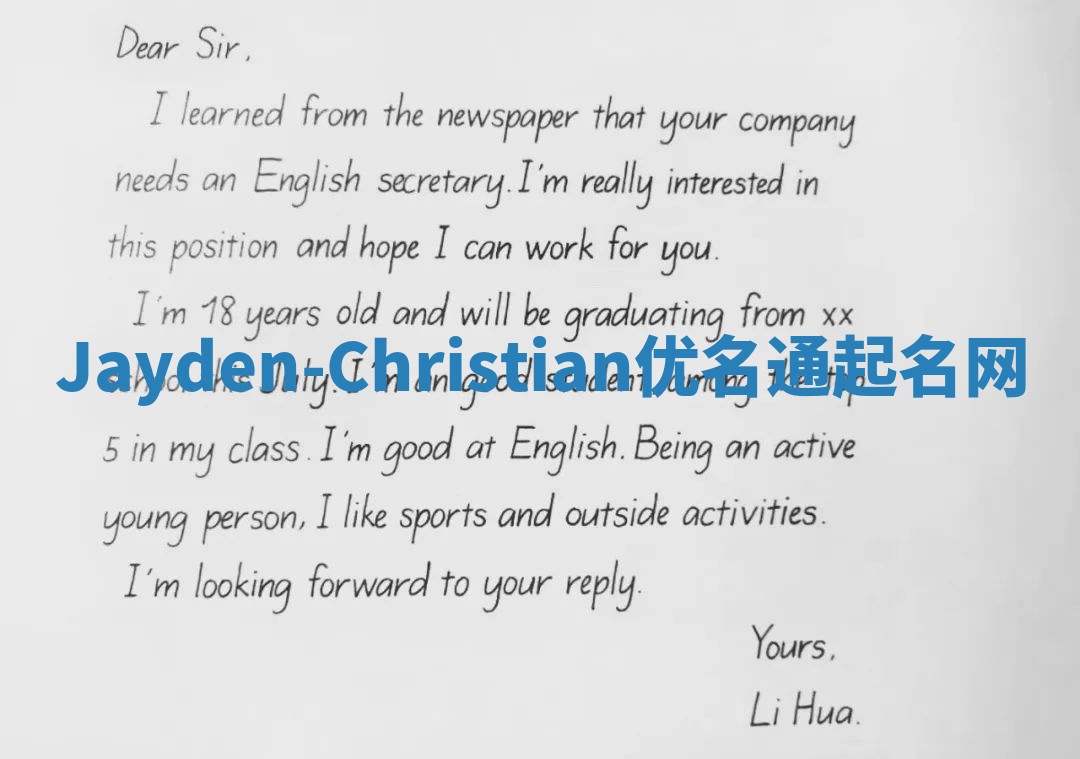 Dear Sir,
I learned from the newspaper that your company
needs an English secretary. I'm really interested in
this position and hope I can work for you.
I'm 18 years old and will be graduating from xx
Jayden-Christian优名通起名网
school this July. I'm an good student, among the top
5 in my class. I'm good at English. Being an active
young person, I like sports and outside activities.
I'm looking forward to your reply.
Yours,
Li Hua.